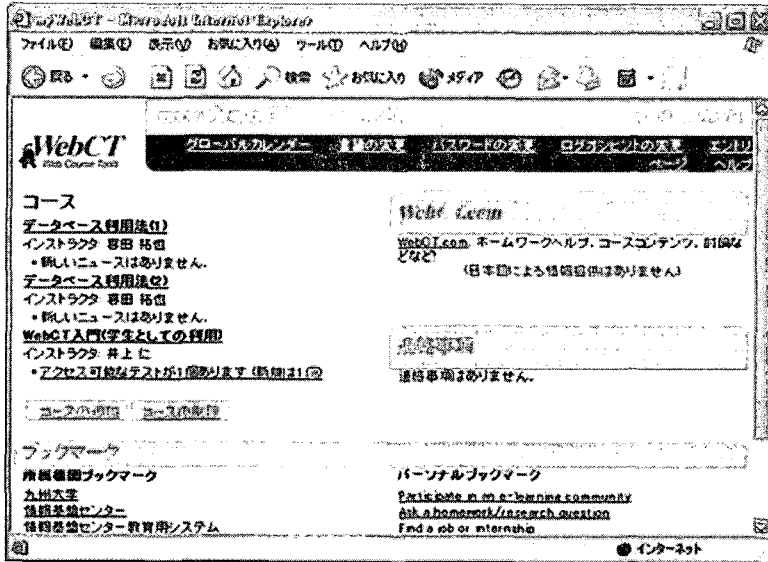 myWebCT - Microsoft Internet Explorer
ファイル(F) 編集(E) 表示(V) お気に入り(A) ツール(T) ヘルプ(H)
戻る 検索 お気に入り メディア
WebCT
Web Course Tools
グローバルカレンダー 言語の変更 パスワードの変更 ログオンヒントの変更 エントリ
ページ ヘルプ
コース
データベース利用法(1)
インストラクタ: 拓也
新しいニュースはありません.
データベース利用法(2)
インストラクタ: 拓也
新しいニュースはありません.
WebCT入門(学生としての利用)
インストラクタ: 井上 仁
アクセス可能なテストが1個あります (新規は1個)
コースの追加 コースの削除
WebCT.com
WebCT.com, ホームワークヘルプ, コースコンテンツ, 討論な
どなど?
(日本語による情報提供はありません)
連絡事項
連絡事項はありません.
ブックマーク
所属機関ブックマーク
九州大学
情報基盤センター
情報基盤センター教育用システム
パーソナルブックマーク
Participate in an e-learning community
Ask a homework/research question
Find a job or internship
インターネット